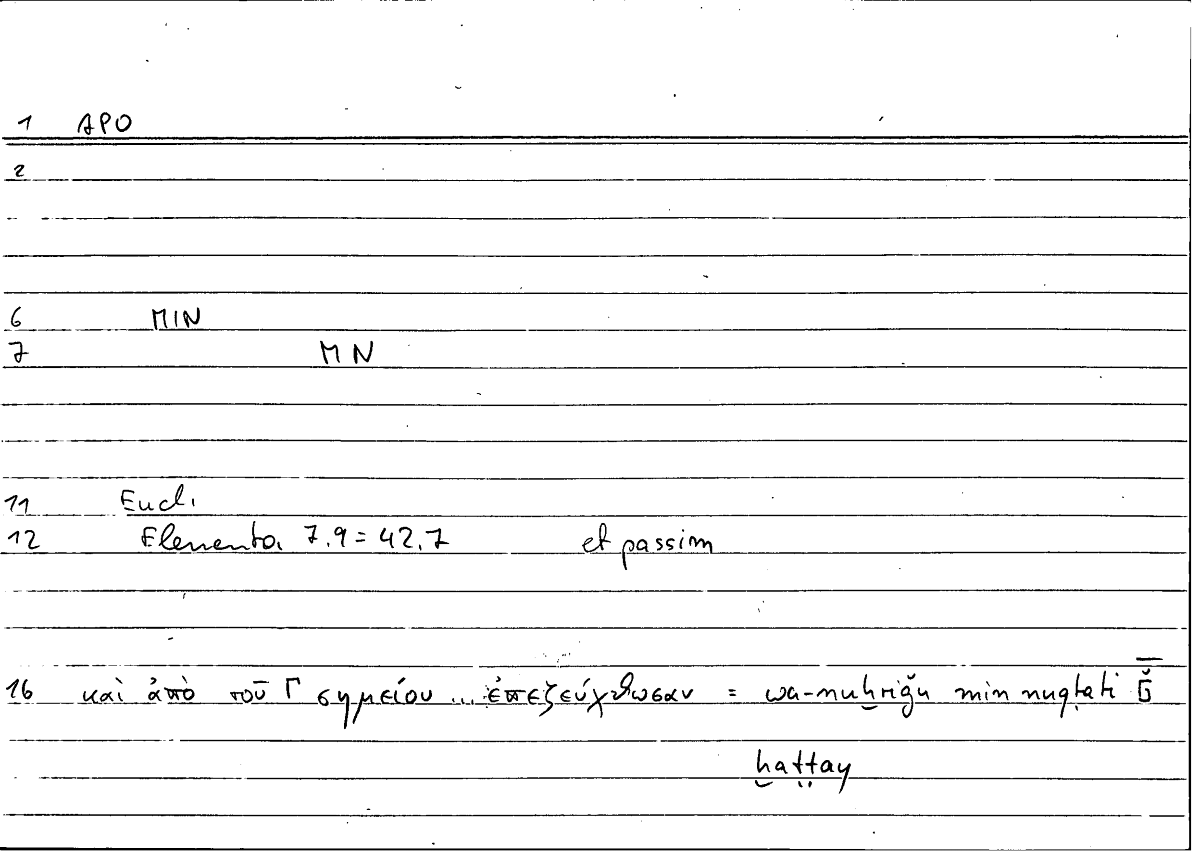 1 APO
2
6 MIN
7 MN
11 Eucl.
12 Elementa 7.9 = 42.7 et passim
16 καὶ ἀπὸ τοῦ Γ σημείου ... ἐπεζεύχθωσαν = wa-nuḫriǧu min nuqṭati Ǧ̅
ḫaṭṭay